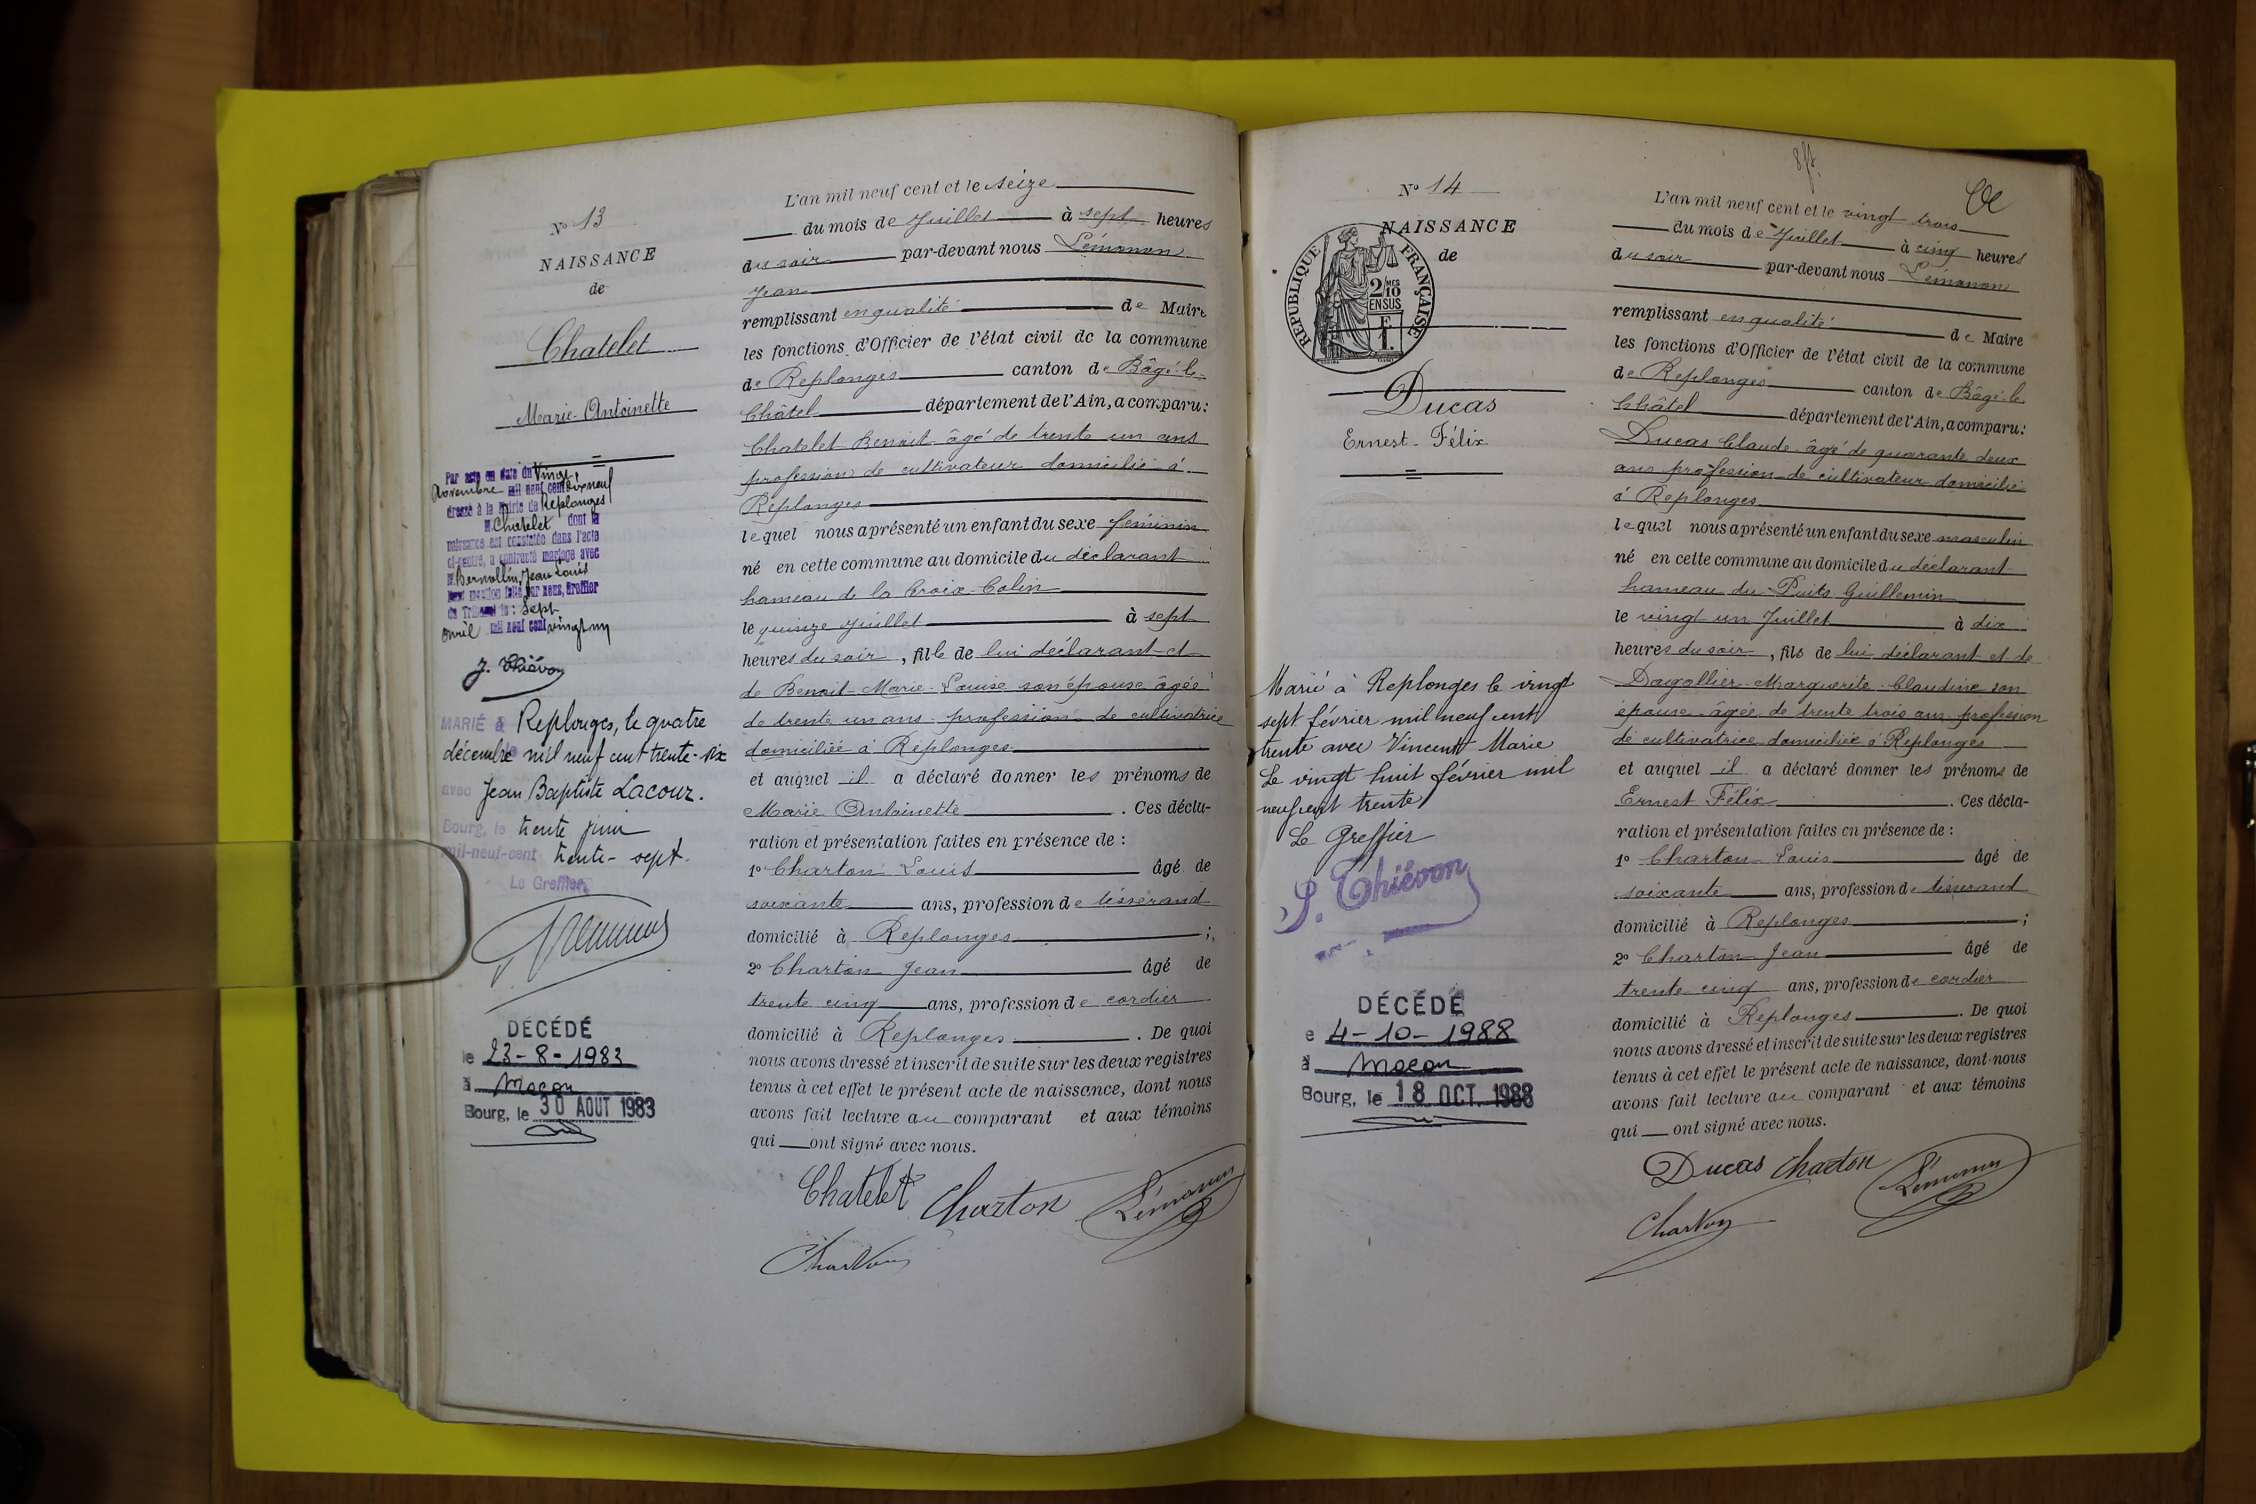 N° 13
NAISSANCE
de
Chatelet
Marie-Antoinette
Par acte en date du Vingt
Novembre mil neuf cent dix neuf
dressé à la Mairie de Replonges
Chatelet dont la
naissance est constatée dans l'acte
ci-contre, a contracté mariage avec
M. Bernollin, Jean Louis
mention faite par nous, Greffier
du Tribunal le : Sept
avril mil neuf cent vingt un
J. Thiévon
MARIÉ à Replonges, le quatre
décembre mil neuf cent trente-six
avec Jean Baptiste Lacour.
Bourg, le trente juin
mil-neuf-cent trente-sept.
Le Greffier,
DÉCÉDÉ
le 23-8-1983
à Macon
Bourg, le 30 AOUT 1983
L'an mil neuf cent et le seize
du mois de Juillet à sept heures
du soir par-devant nous Lémonon
Jean
remplissant en qualité de Maire
les fonctions d'Officier de l'état civil de la commune
de Replonges canton de Bâgé-le-
Châtel département de l'Ain, a comparu :
Chatelet Benoit âgé de trente un ans
profession de cultivateur domicilié à
Replonges
lequel nous a présenté un enfant du sexe féminin
né en cette commune au domicile du déclarant
hameau de la Croix-Colin
le quinze Juillet à sept
heures du soir, fille de lui déclarant et
de Benoit-Marie-Louise son épouse âgée
de trente un ans profession de cultivatrice
domiciliée à Replonges
et auquel il a déclaré donner les prénoms de
Marie Antoinette. Ces décla-
ration et présentation faites en présence de :
1° Charton Louis âgé de
soixante ans, profession de tisserand
domicilié à Replonges ;
2° Charton Jean âgé de
trente cinq ans, profession de cordier
domicilié à Replonges. De quoi
nous avons dressé et inscrit de suite sur les deux registres
tenus à cet effet le présent acte de naissance, dont nous
avons fait lecture au comparant et aux témoins
qui ont signé avec nous.
Chatelet Charton Lémonon
Charton
N° 14
NAISSANCE
de
RÉPUBLIQUE FRANÇAISE
2/10 MES
EN SUS
F
1.
Ducas
Ernest-Félix
Marié à Replonges le vingt
sept février mil neuf cent
trente avec Vincent Marie
Le vingt huit février mil
neuf cent trente
Le Greffier
J. Thiévon
DÉCÉDÉ
e 4-10-1988
à Macon
Bourg, le 18 OCT. 1988
L'an mil neuf cent et le vingt trois
du mois de Juillet à cinq heures
du soir par-devant nous Lémonon
remplissant en qualité de Maire
les fonctions d'Officier de l'état civil de la commune
de Replonges canton de Bâgé-le
Châtel département de l'Ain, a comparu :
Ducas Claude âgé de quarante deux
ans profession de cultivateur domicilié
à Replonges
lequel nous a présenté un enfant du sexe masculin
né en cette commune au domicile du déclarant
hameau du Puits Guillemin
le vingt un Juillet à dix
heures du soir, fils de lui déclarant et de
Dagallier Marguerite Claudine son
épouse âgée de trente trois ans profession
de cultivatrice domiciliée à Replonges
et auquel il a déclaré donner les prénoms de
Ernest Félix. Ces décla-
ration et présentation faites en présence de :
1° Charton Louis âgé de
soixante ans, profession de tisserand
domicilié à Replonges ;
2° Charton Jean âgé de
trente cinq ans, profession de cordier
domicilié à Replonges. De quoi
nous avons dressé et inscrit de suite sur les deux registres
tenus à cet effet le présent acte de naissance, dont nous
avons fait lecture au comparant et aux témoins
qui ont signé avec nous.
Ducas Charton Lémonon
Charton